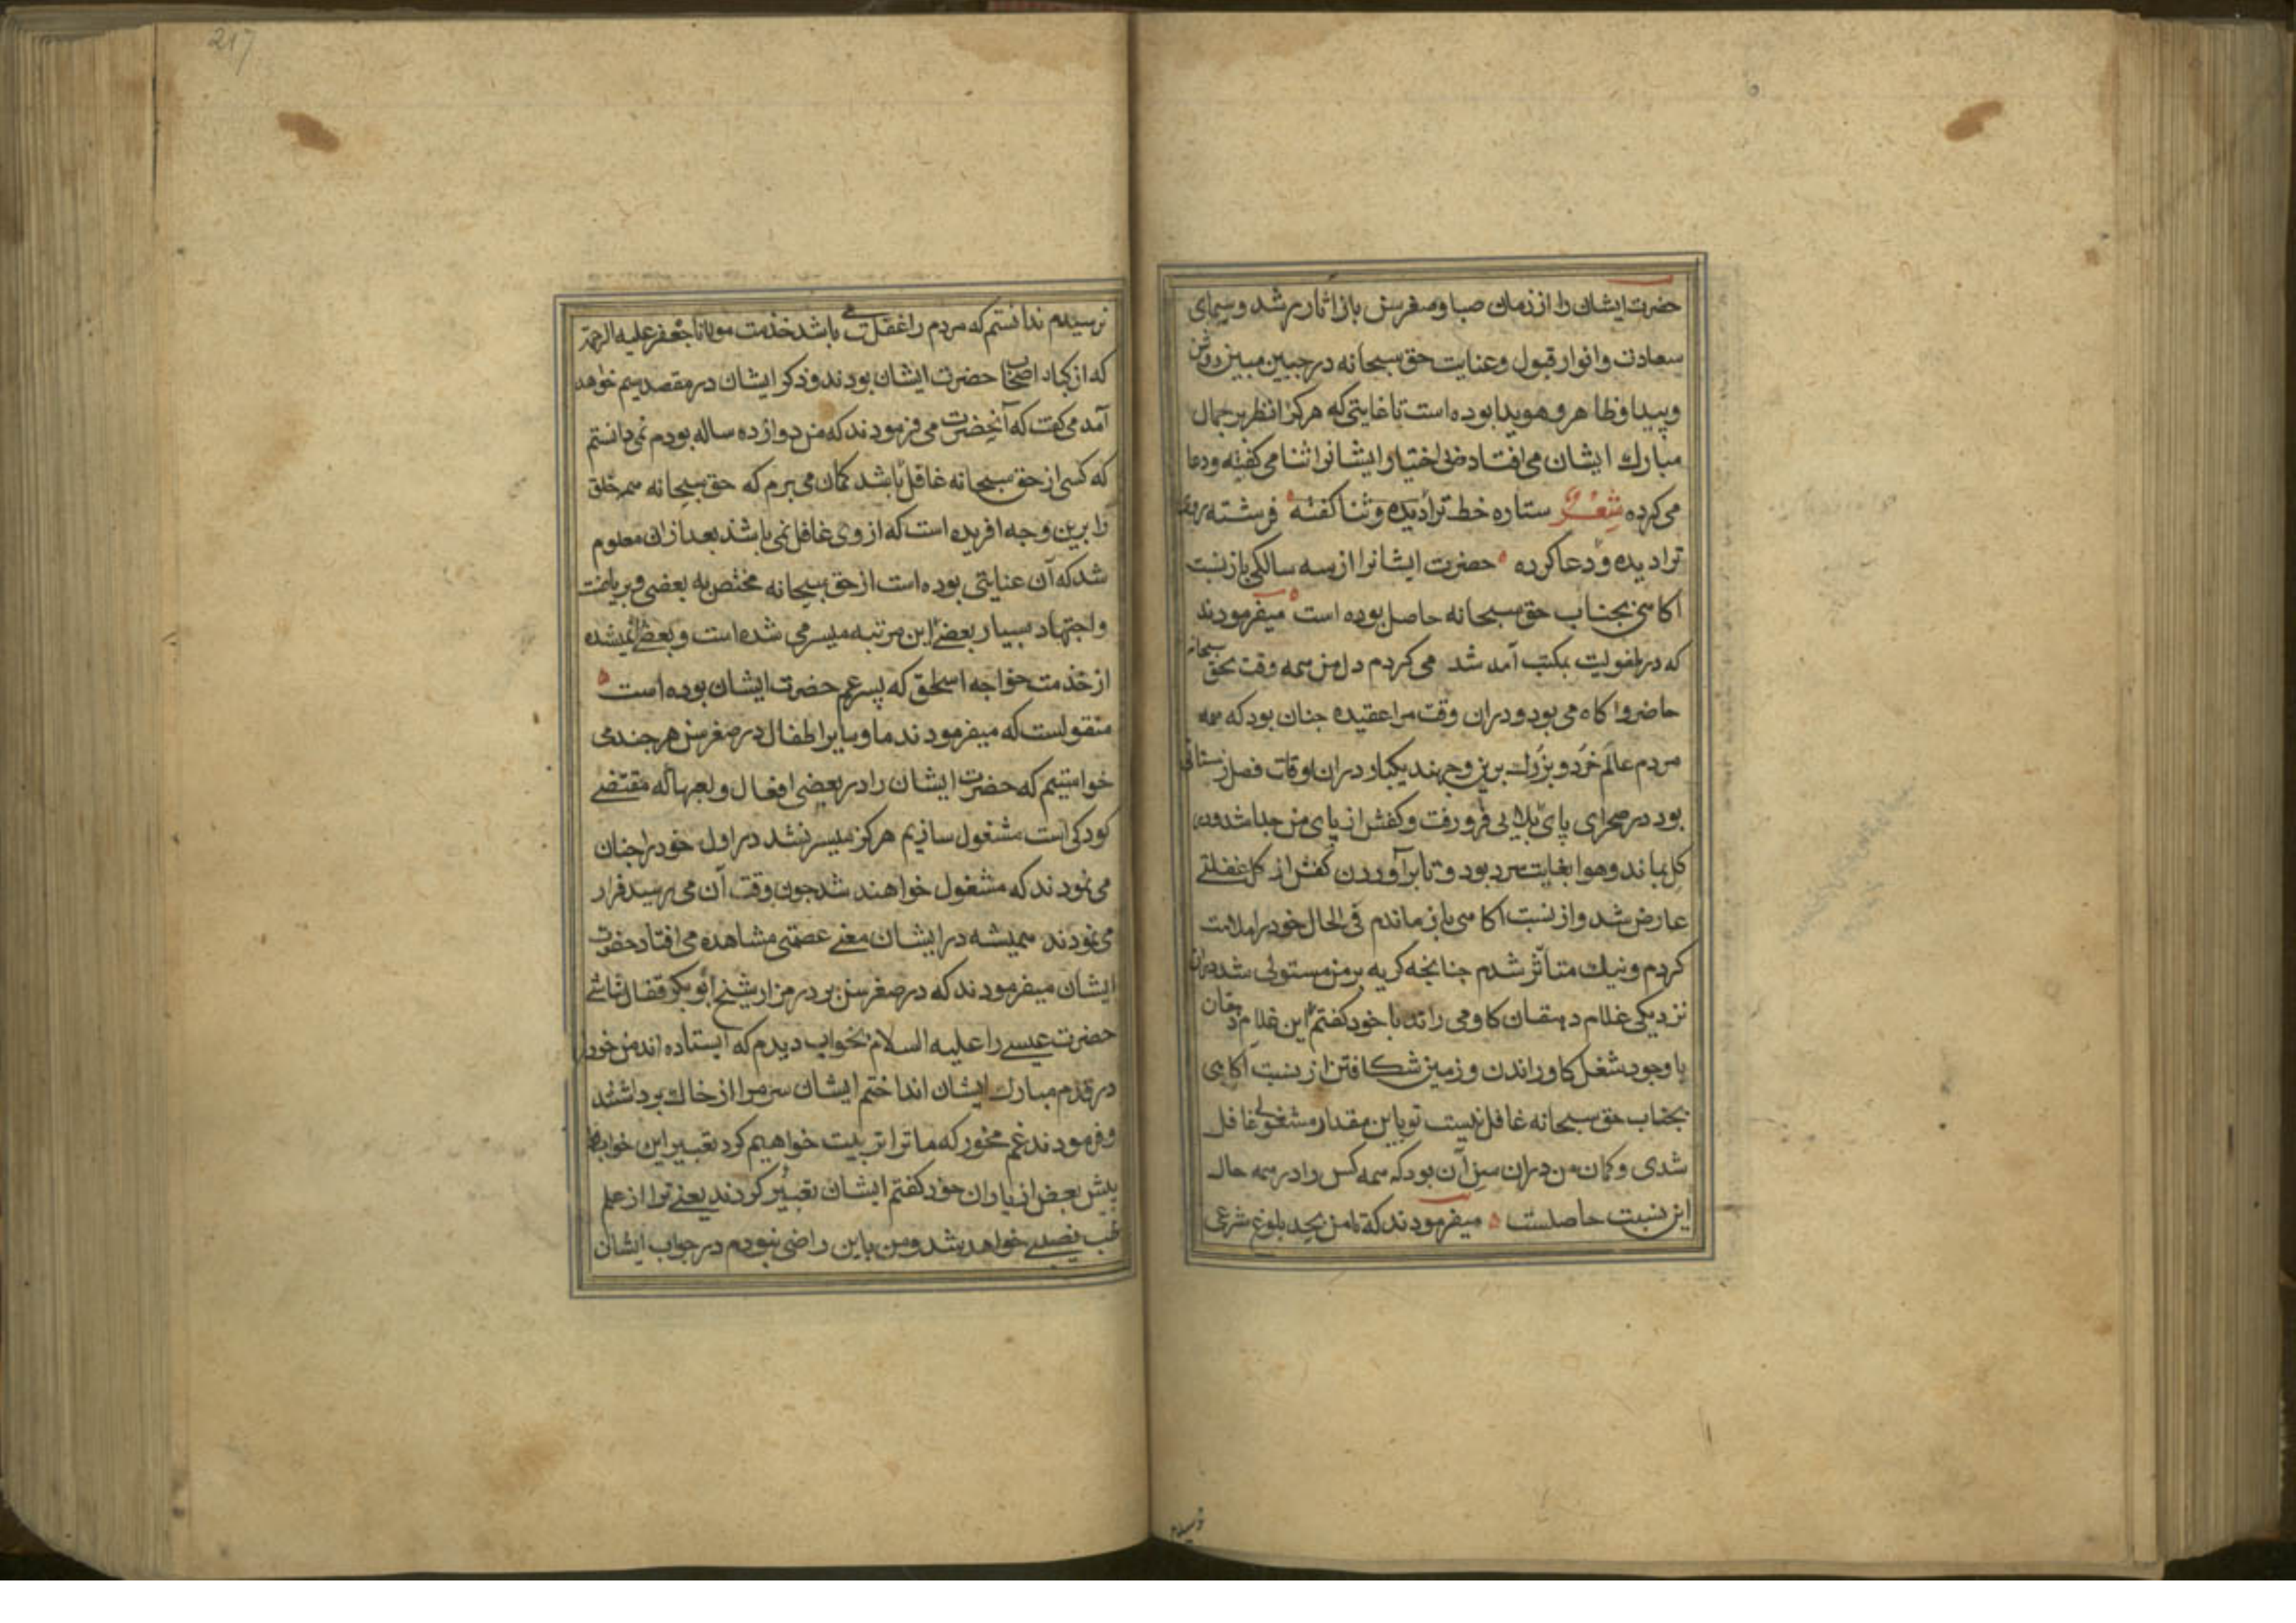 حضرت ایشان را از زمان صبا و صغر سن باز اثار رشد و سیمای
سعادت و انوار قبول و عنایت حق سبحانه در جبین مبین روشن
و پیدا و ظاهر و هویدا بوده است تا غایتی که هر کرا نظر بر جمال
مبارك ایشان می افتاد بی اختیار ایشانرا ثنا می کفته و دعا
می کرده شعر ستاره خط ترا دیده و ثنا کفته فرشته روی
ترا دیده و دعا کرده حضرت ایشانرا از سه سالکی باز نسبت
اکاهی بجناب حق سبحانه حاصل بوده است میفرمودند
که در طفولیت بمکتب آمد شد می کردم دل من همه وقت بحق سبحانه
حاضر و اکاه می بود و دران وقت مرا عقیده جنان بود که همه
مردم عالم خرد و بزرك برین وجهند یکبار دران اوقات فصل زمستانی
بود در صحرای پای بلایی فرو رفت و کفش از پای من جدا شد و در
کل بماند و هوا بغایت سرد بود و تا برآوردن کفش از کل غفلتی
عارض شد و از نسبت اکاهی باز ماندم فی الحال خود را ملامت
کردم و نیك متأثر شدم جنانجه کریه بر من مستولی شد دران
نزدیکی غلام دهقان کاو می راند با خود کفتم این غلام دهقان
با وجود شغل کاو راندن و زمین شکافتن از نسبت اکاهی
بجناب حق سبحانه غافل نیست تو باین مقدار مشغولی غافل
شدی و کمان من دران سن آن بود که همه کس را در همه حال
این نسبت حاصلست میفرمودند که تا من بحد بلوغ شرعی
نرسیدم
نرسیدم ندانستم که مردم را غفلت می باشد خذمت مولانا جعفر علیه الرحمة
که از کبار اصحاب حضرت ایشان بودند و ذکر ایشان در مقصد سیم خواهد
آمد می کفت که آنحضرت می فرمودند که من دوازده ساله بودم نمی دانستم
که کسی از حق سبحانه غافل باشد کمان می برم که حق سبحانه همه خلق
را برین وجه افریده است که از وی غافل نمی باشند بعد ازان معلوم
شد که آن عنایتی بوده است از حق سبحانه مختص به بعضی و بریاضت
و اجتهاد بسیار بعضی این مرتبه میسر می شده است و بعضی نمیشده
از خذمت خواجه اسحق که پسر عم حضرت ایشان بوده است
منقولست که میفرمودند ما و سایر اطفال در صغر سن هر جند می
خواستیم که حضرت ایشان را در بعضی افعال و لعبها که مقتضی
کودکی است مشغول سازیم هرکز میسر نشد در اول خود را جنان
می نمودند که مشغول خواهند شد جون وقت آن می رسید فرار
می نمودند همیشه در ایشان معنی عصمتی مشاهده می افتاد حضرت
ایشان میفرمودند که در صغر سن بر در مزار شیخ ابو بکر قفال شاشی
حضرت عیسی را علیه السلام بخواب دیدم که ایستاده اند من خود را
در قدم مبارك ایشان انداختم ایشان سر مرا از خاك برداشتند
و فرمودند غم مخور که ما ترا تربیت خواهیم کرد تعبیر این خواب را
پیش بعض از یاران خود کفتم ایشان تعبیر کردند یعنی ترا از علم
طب نصیبی خواهد شد و من باین راضی نبودم در جواب ایشان
217